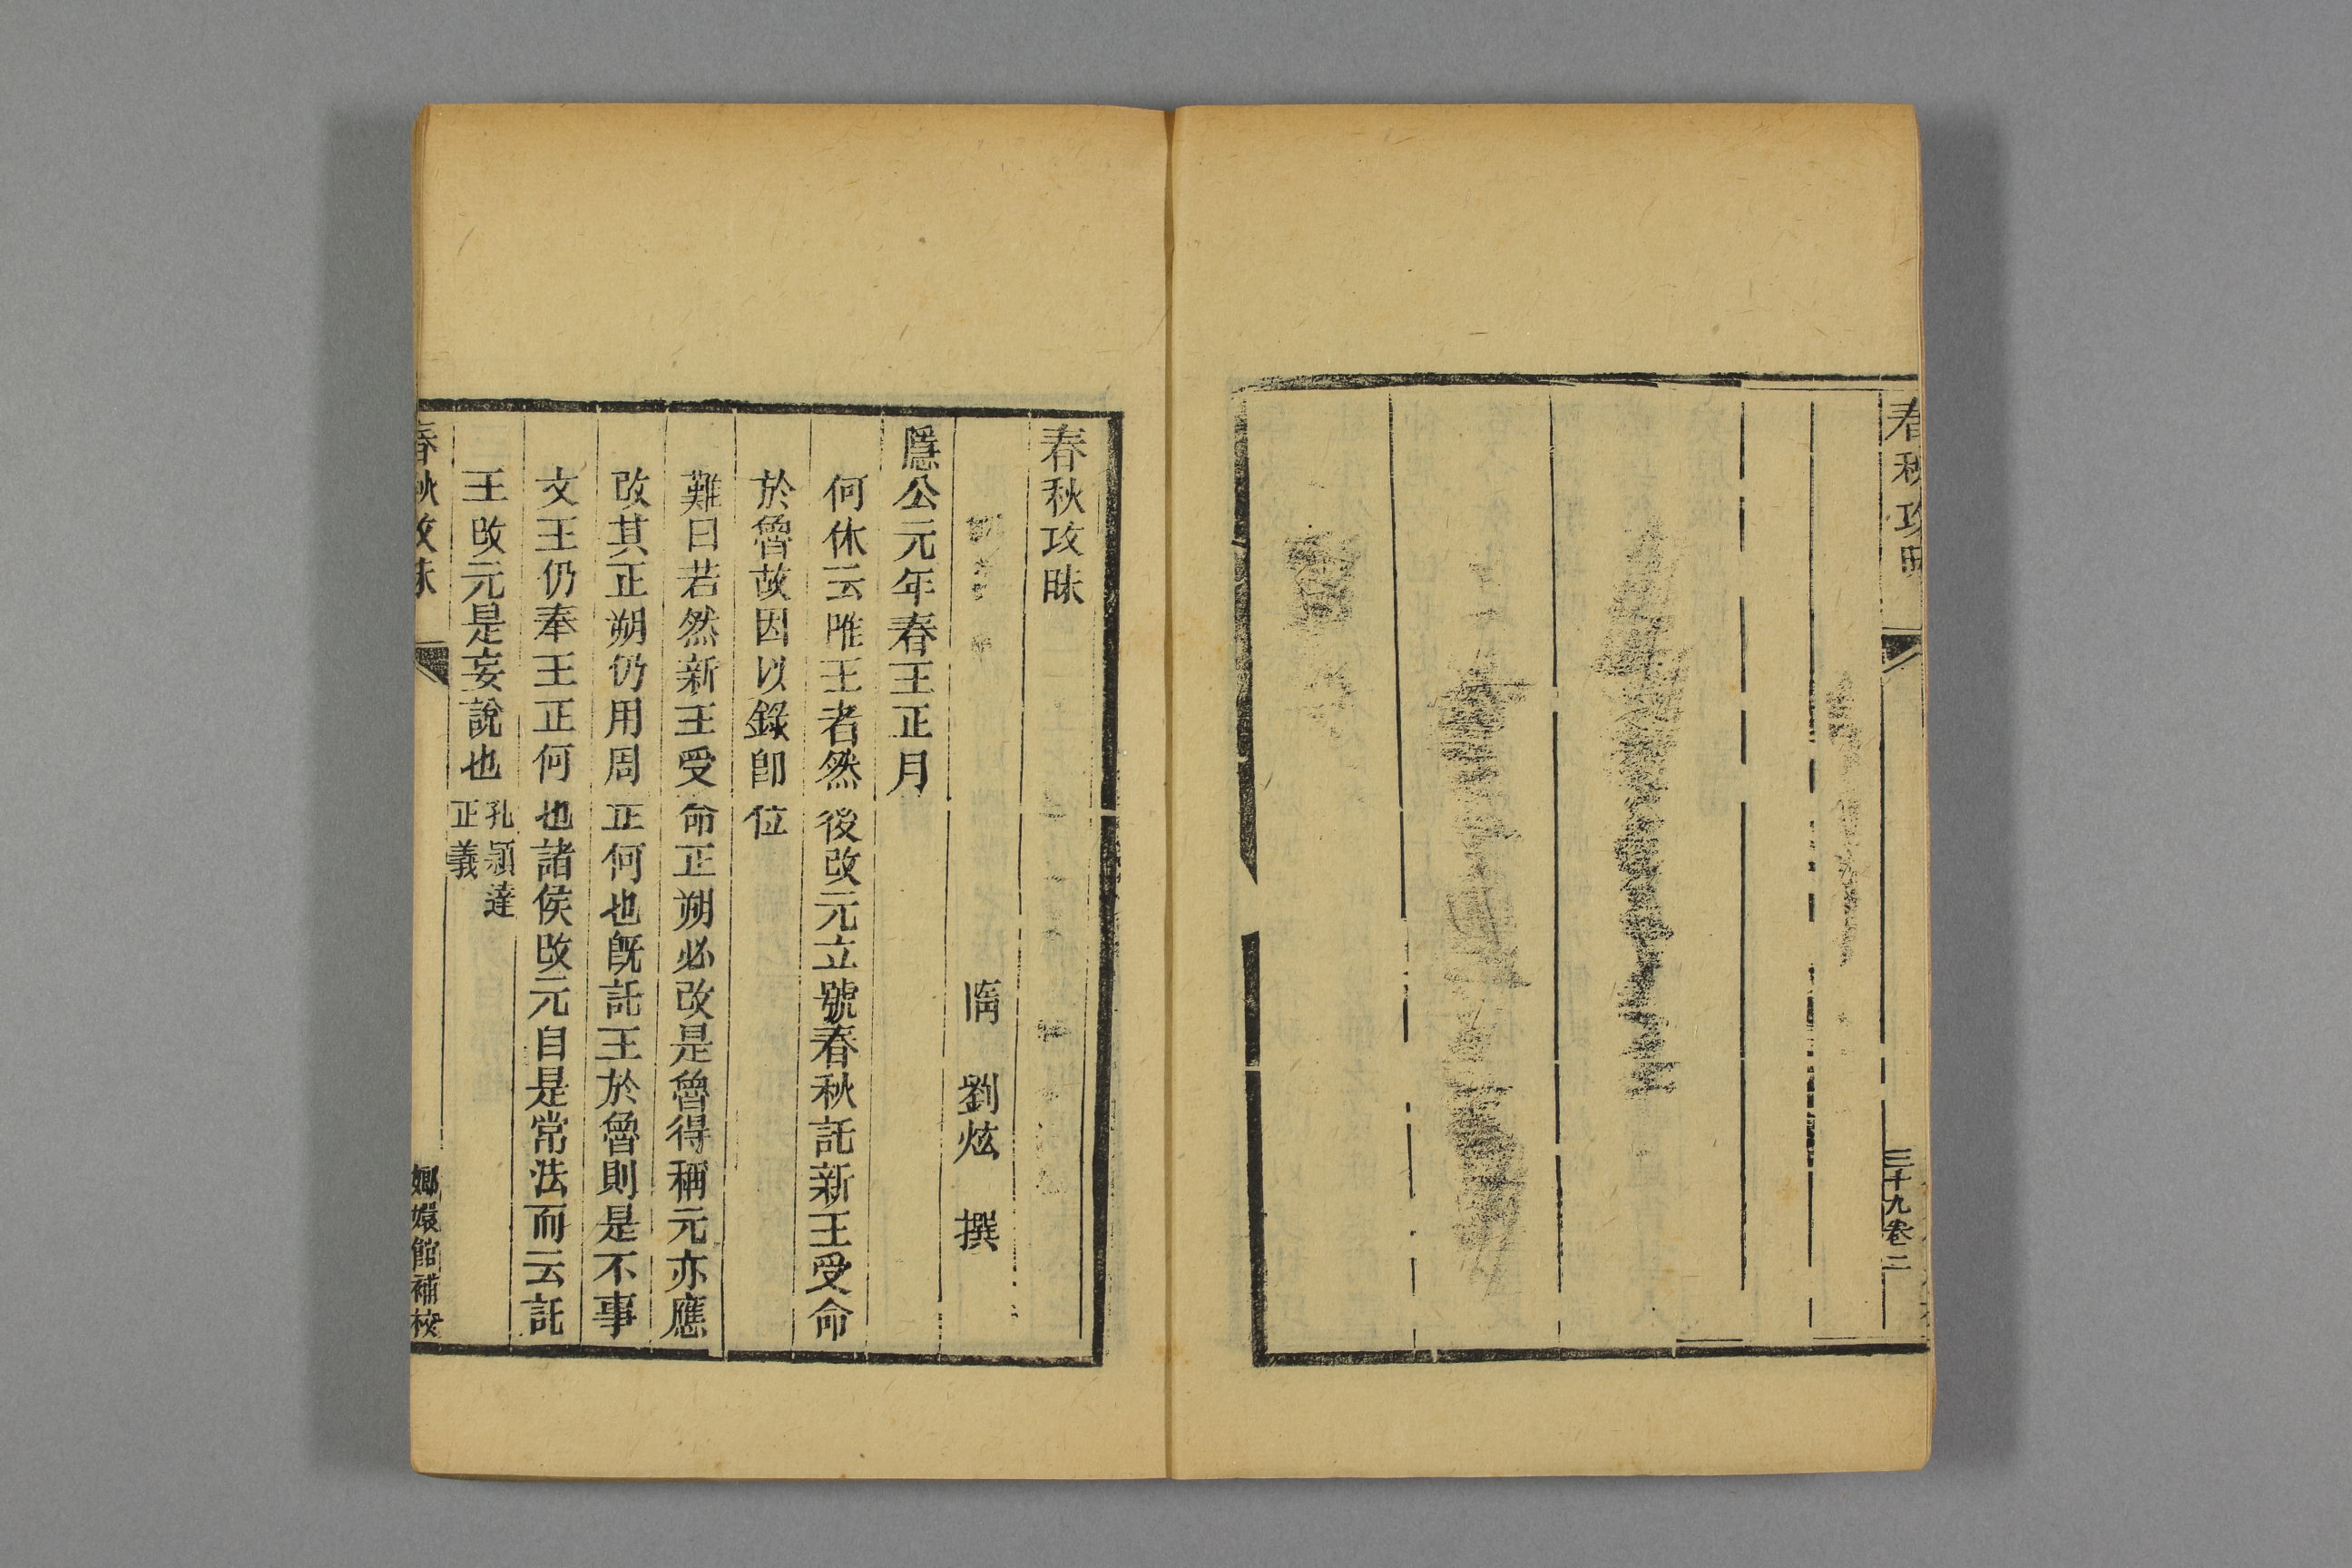 春秋攻昧
三十九卷二
春秋攻昧
隋 劉炫 撰
隱公元年春王正月
何休云唯王者然後改元立號春秋託新王受命
於魯故因以錄卽位
難曰若然新王受命正朔必改是魯得稱元亦應
改其正朔仍用周正何也旣託王於魯則是不事
文王仍奉王正何也諸侯改元自是常法而云託
王改元是妄說也
孔潁達
正義
春秋攻昧
嫏嬛館補校